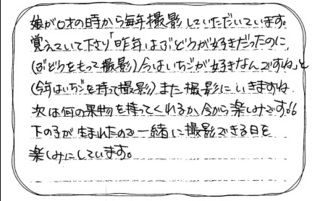 娘が0才の時から毎年撮影していただいています。
覚えていて下さり「昨年はぶどうが好きだったのに、
(ぶどうをもって撮影)今はいちごが好きなんですね」と
(今年はいちごを持って撮影)また撮影にいきますね
次は何の果物を持ってくれるか、今から楽しみです。
下の子が生まれたので一緒に撮影できる日を
楽しみにしています。